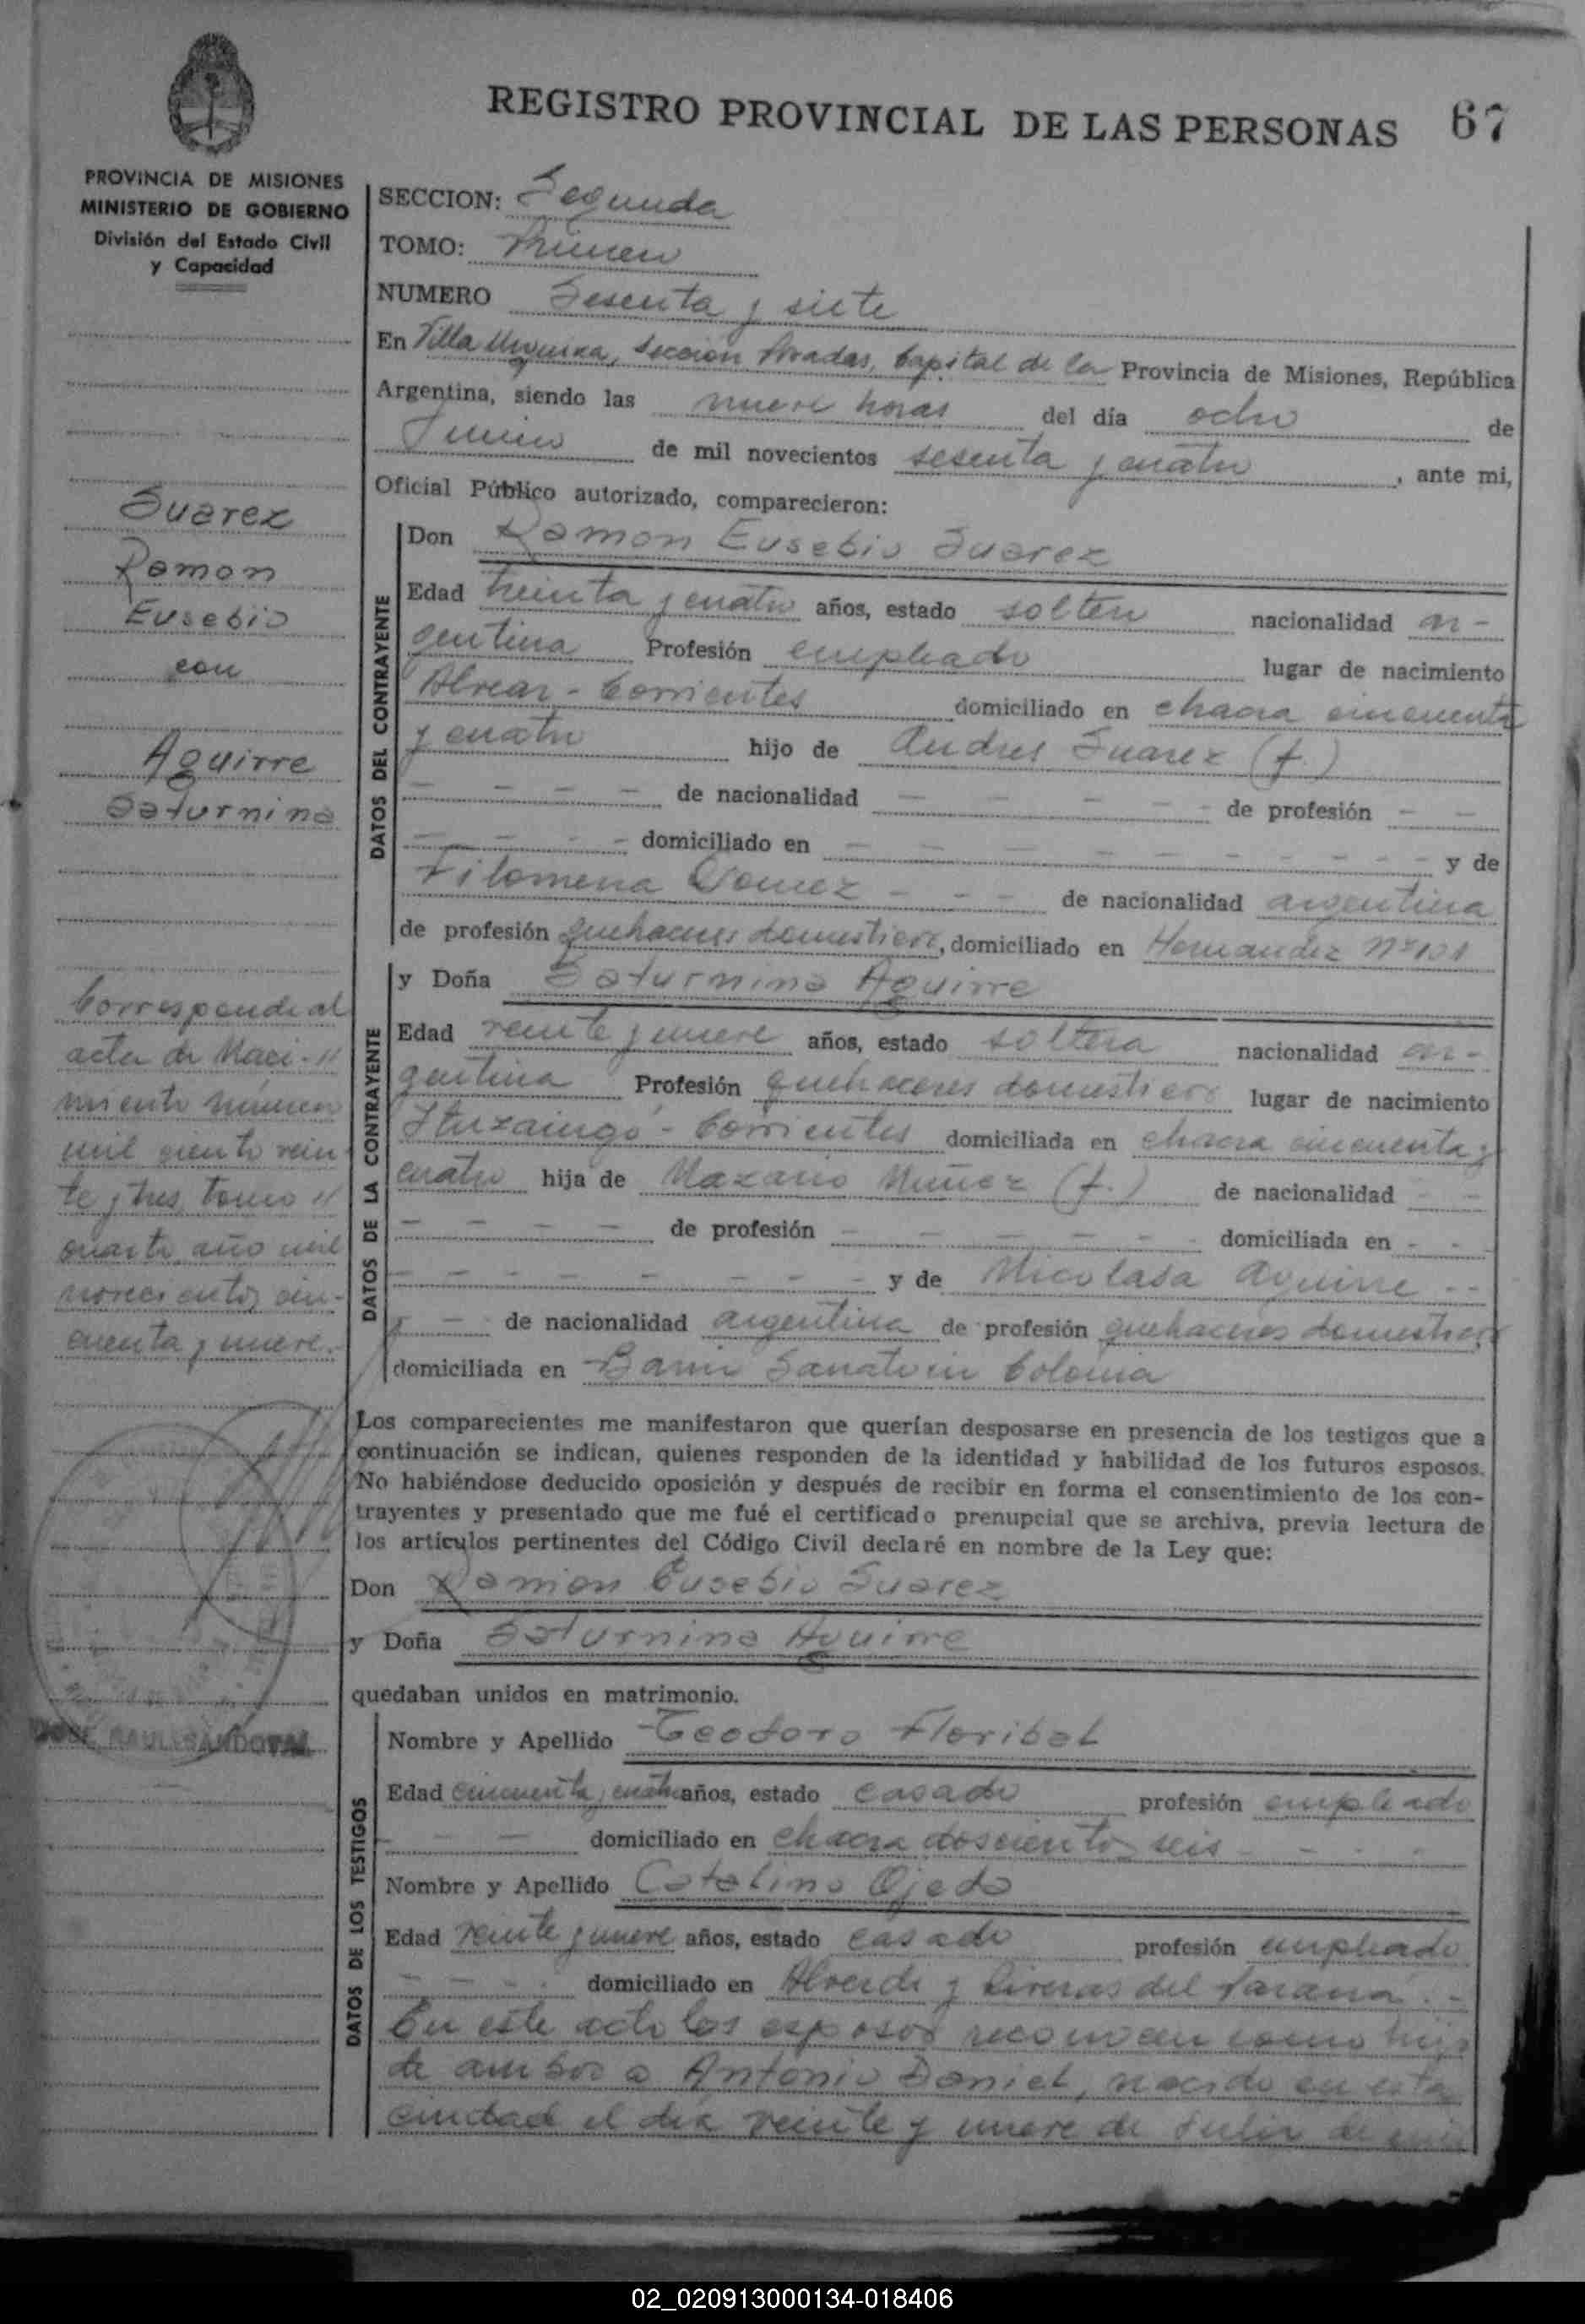 REGISTRO PROVINCIAL DE LAS PERSONAS 67
PROVINCIA DE MISIONES
MINISTERIO DE GOBIERNO
División del Estado Civil
y Capacidad
Suarez
Ramon
Eusebio
con
Aguirre
Saturnina
Corresponde al
acta de Naci-
miento número
mil ciento vein
te y tres, tomo
cuarto, año mil
novecientos cin-
cuenta y nueve.
JOSE RAUL SANDOVAL
SECCION: Segunda
TOMO: Primero
NUMERO Sesenta y siete
En Villa Urquiza, Sección Posadas, Capital de la Provincia de Misiones, República
Argentina, siendo las nueve horas del día ocho de
Junio de mil novecientos sesenta y cuatro, ante mi,
Oficial Público autorizado, comparecieron:
DATOS DEL CONTRAYENTE
Don Ramon Eusebio Suarez
Edad treinta y cuatro años, estado soltero nacionalidad ar-
gentina Profesión empleado lugar de nacimiento
Alvear - Corrientes domiciliado en chacra cincuenta
y cuatro hijo de Andres Suarez (f.)
- - - - de nacionalidad - - - - - de profesión - -
- - - - domiciliado en - - - - - - - - - y de
Filomena Gomez - - - de nacionalidad argentina
de profesión quehaceres domesticos, domiciliado en Hernandez Nº 101
DATOS DE LA CONTRAYENTE
y Doña Saturnina Aguirre
Edad veinte y nueve años, estado soltera nacionalidad ar-
gentina Profesión quehaceres domesticos lugar de nacimiento
Ituzaingó - Corrientes domiciliada en chacra cincuenta y
cuatro hija de Nazario Muñoz (f.) de nacionalidad - -
- - - - de profesión - - - - - - domiciliada en - - -
- - - - - - - - y de Nicolasa Aguirre - -
- - de nacionalidad argentina de profesión quehaceres domesticos,
domiciliada en Barrio Sanatorio Colonia
Los comparecientes me manifestaron que querían desposarse en presencia de los testigos que a
continuación se indican, quienes responden de la identidad y habilidad de los futuros esposos.
No habiéndose deducido oposición y después de recibir en forma el consentimiento de los con-
trayentes y presentado que me fué el certificado prenupcial que se archiva, previa lectura de
los artículos pertinentes del Código Civil declaré en nombre de la Ley que:
Don Ramon Eusebio Suarez
y Doña Saturnina Aguirre
quedaban unidos en matrimonio.
DATOS DE LOS TESTIGOS
Nombre y Apellido Teodoro Floribal
Edad cincuenta y cuatro años, estado casado profesión empleado
- - - domiciliado en chacra doscientos seis - - - -
Nombre y Apellido Catalino Ojeda
Edad veinte y nueve años, estado casado profesión empleado
- - - - domiciliado en Alverdi y Riveras del Parana . -
En este acto los esposos reconocen como hijo
de ambos a Antonio Daniel, nacido en esta
ciudad el día veinte y nueve de Julio de mil
02_020913000134-018406